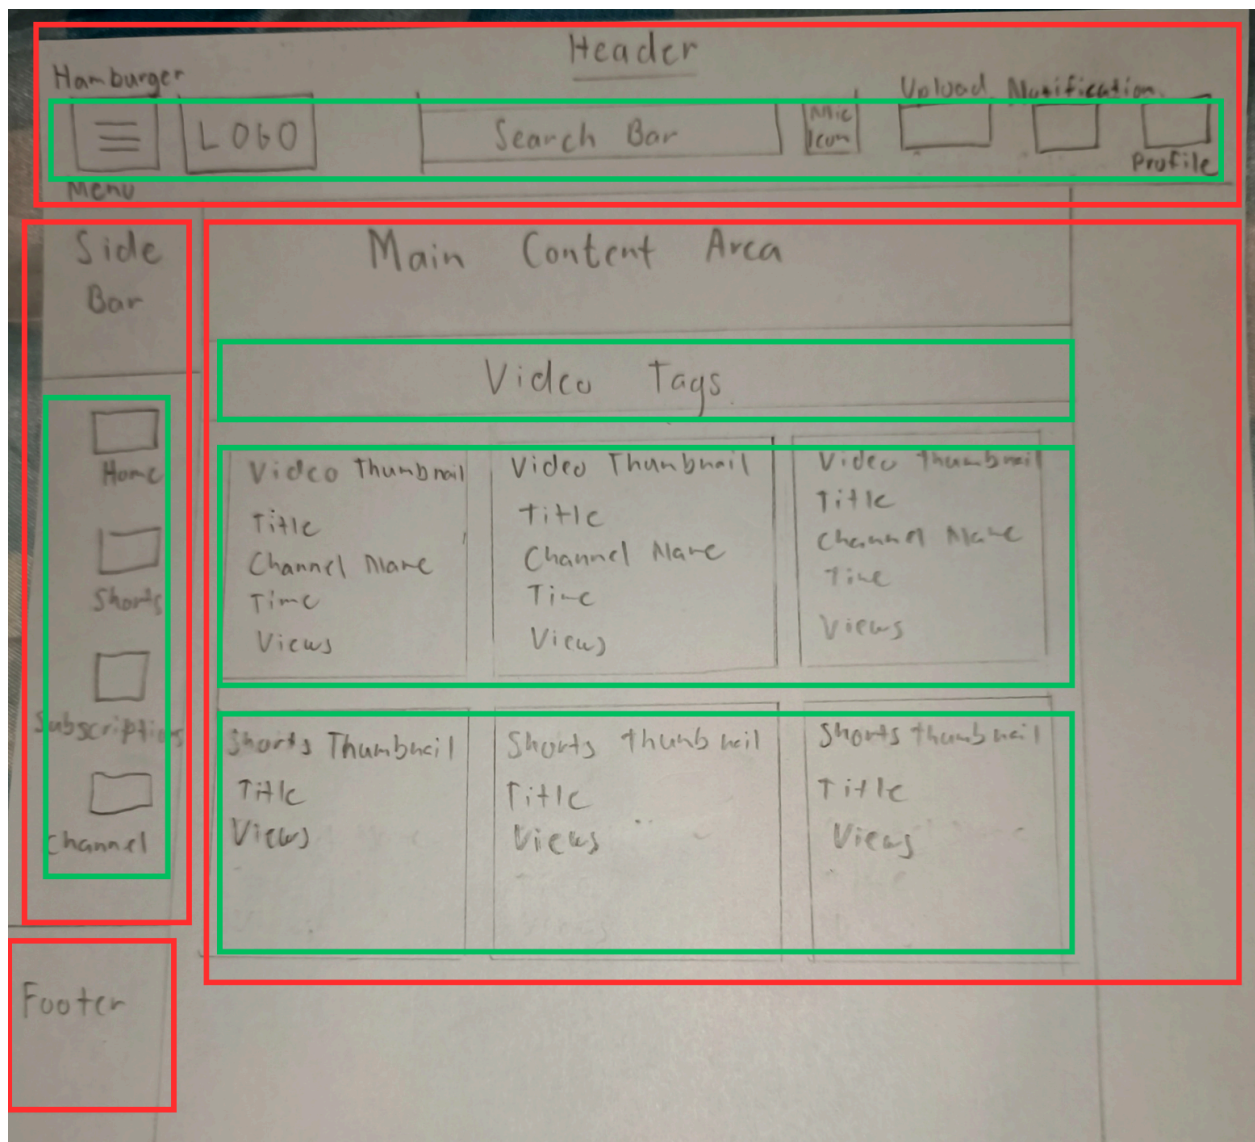 Header
Hamburger
Menu
LOGO
Search Bar
Mic
Icon
Upload
Notification
Profile
Side
Bar
Home
Shorts
Subscription
Channel
Footer
Main Content Area
Video Tags
Video Thumbnail
Title
Channel Name
Time
Views
Video Thumbnail
Title
Channel Name
Time
Views
Video thumbnail
Title
Channel Name
Time
Views
Shorts Thumbnail
Title
Views
Shorts thumbnail
Title
Views
Shorts thumbnail
Title
Views